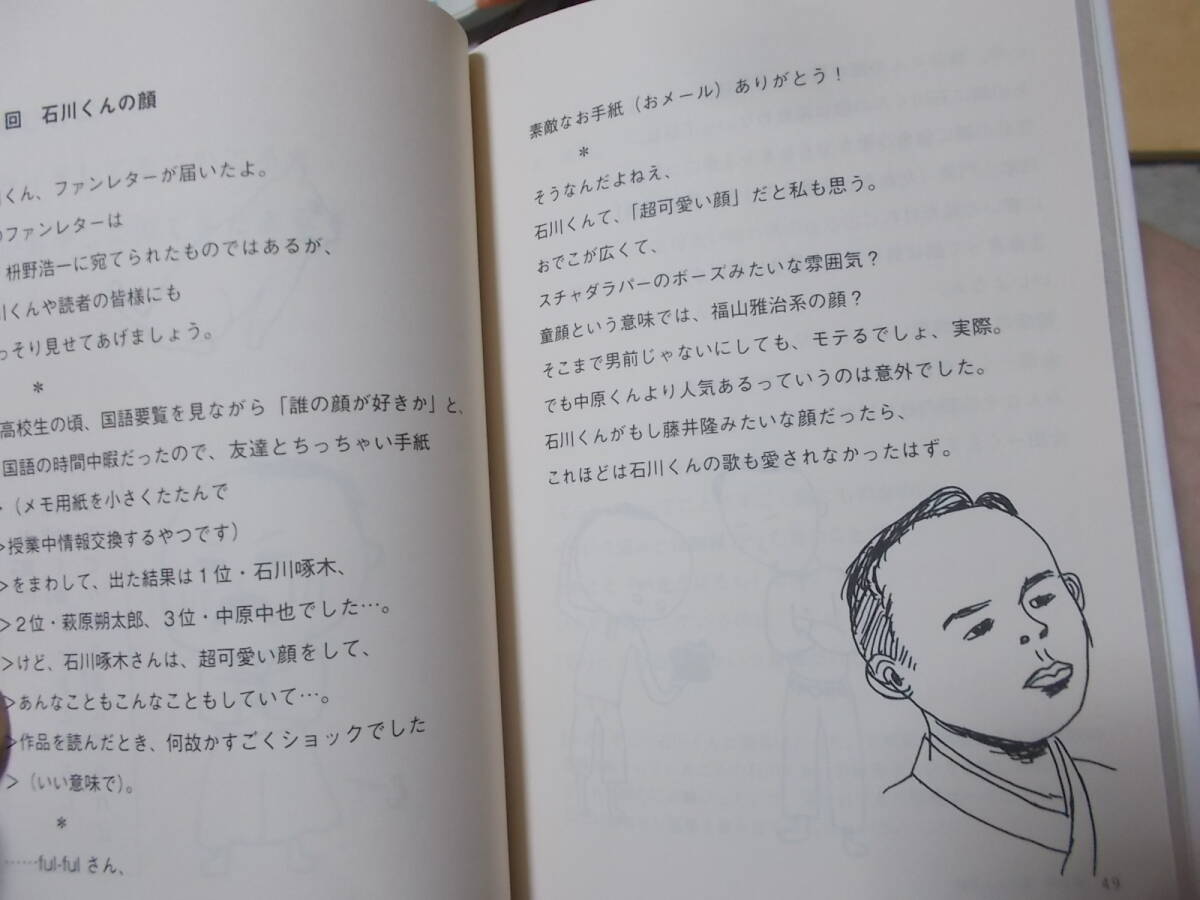 回 石川くんの顔
くん、ファンレターが届いたよ。
ファンレターは
枡野浩一に宛てられたものではあるが、
川くんや読者の皆様にも
っそり見せてあげましょう。
*
高校生の頃、国語要覧を見ながら「誰の顔が好きか」と、
国語の時間中暇だったので、友達とちっちゃい手紙
>(メモ用紙を小さくたたんで
>授業中情報交換するやつです)
>をまわして、出た結果は1位・石川啄木、
>2位・萩原朔太郎、3位・中原中也でした…。
>けど、石川啄木さんは、超可愛い顔をして、
>あんなこともこんなこともしていて…。
>作品を読んだとき、何故かすごくショックでした
>(いい意味で)。
*
……ful-fulさん、
素敵なお手紙(おメール)ありがとう!
*
そうなんだよねえ、
石川くんて、「超可愛い顔」だと私も思う。
おでこが広くて、
スチャダラパーのボーズみたいな雰囲気?
童顔という意味では、福山雅治系の顔?
そこまで男前じゃないにしても、モテるでしょ、実際。
でも中原くんより人気あるっていうのは意外でした。
石川くんがもし藤井隆みたいな顔だったら、
これほどは石川くんの歌も愛されなかったはず。
49